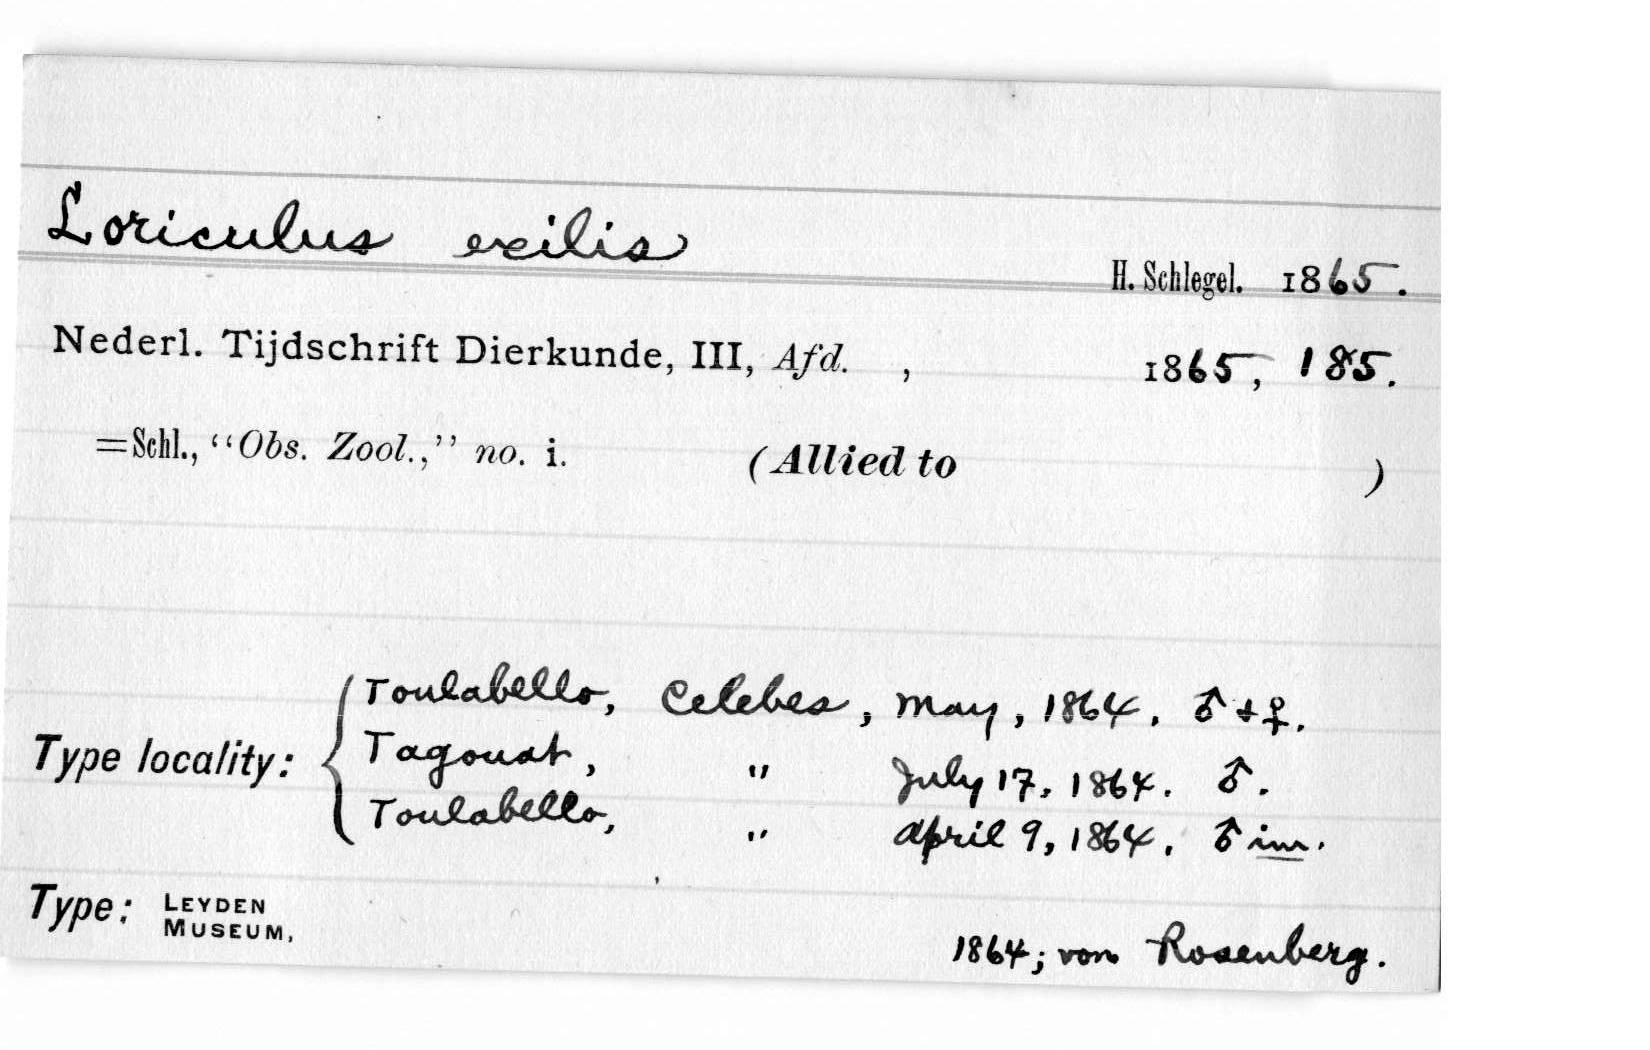 Loriculus exilis
H. Schlegel. 1865.
Nederl. Tijdschrift Dierkunde, III, Afd. , 1865, 185.
=Schl., “Obs. Zool.,” no. i. (Allied to )
Type locality:
Toulabello, Celebes, May, 1864. ♂ + ♀.
Tagouat, " July 17, 1864. ♂.
Toulabello, " April 9, 1864. ♂ im.
Type: LEYDEN
MUSEUM,
1864; von Rosenberg.